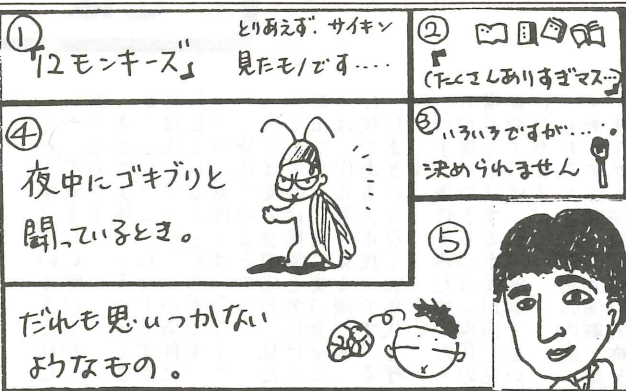 ①
『12モンキーズ』
とりあえず、サイキン
見たモノです‥‥‥
②
『　　』
(たくさんありすぎマス…)
③
いろいろですが…
決められません
④
夜中にゴキブリと
闘っているとき。
⑤
だれも思いつかない
ようなもの。